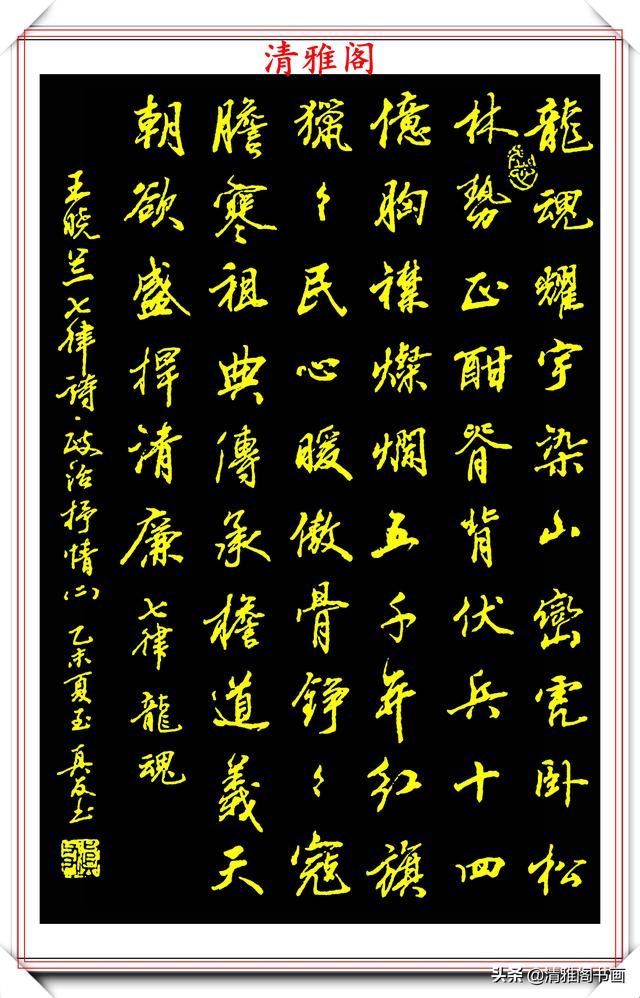 清雅阁
龍魂耀宇染山巒虎卧松
林勢正酣脊背伏兵十四
億胸襟燦爛五千年紅旗
獵〻民心暖傲骨錚〻寇
膽寒祖典傳承擔道義天
朝欲盛捍清廉 七律龍魂
王晓兰七律詩·政治抒情(二) 乙未夏玉真友书
头条 @清雅阁书画